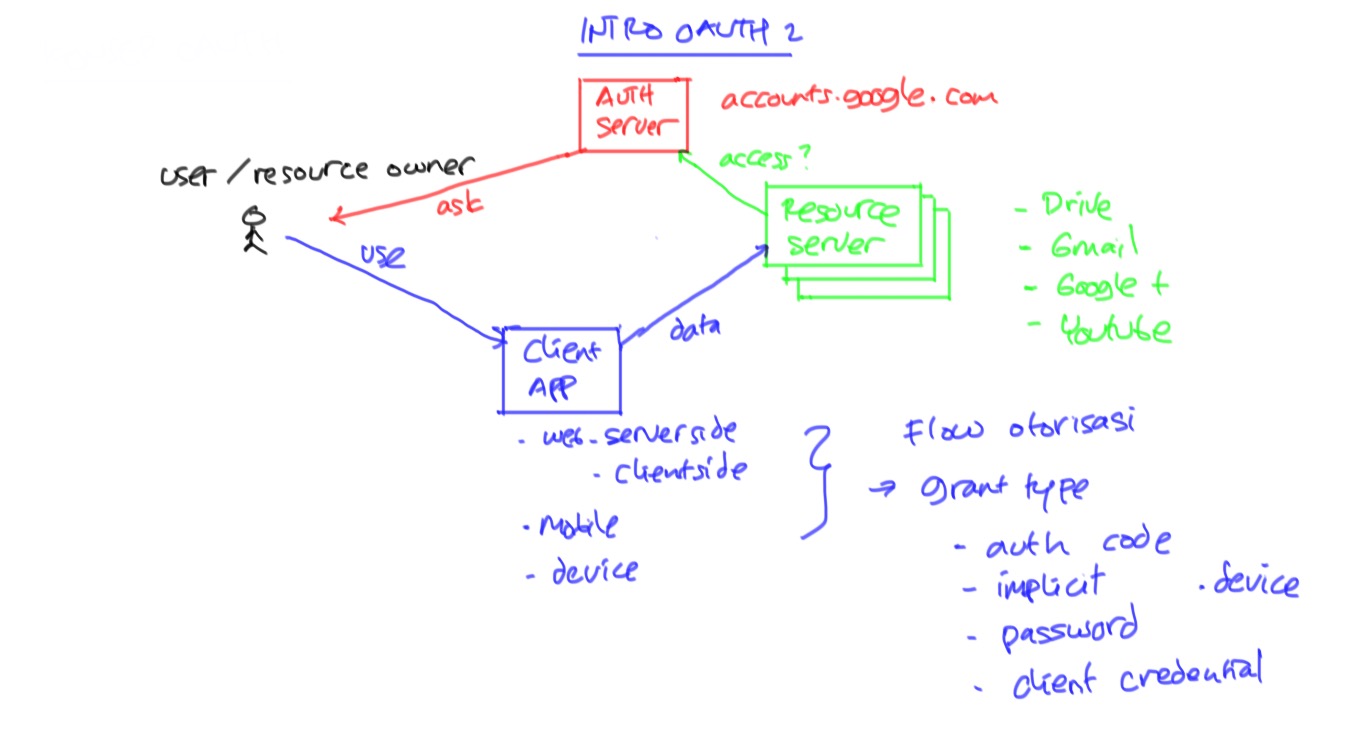 INTRO OAUTH 2
AUTH
Server
accounts.google.com
access?
user / resource owner
ask
use
Resource
server
- Drive
- Gmail
- Google +
- Youtube
data
Client
APP
- web - serverside
- clientside
- mobile
- device
Flow otorisasi
→ grant type
- auth code
- implicit
- device
- password
- client credential